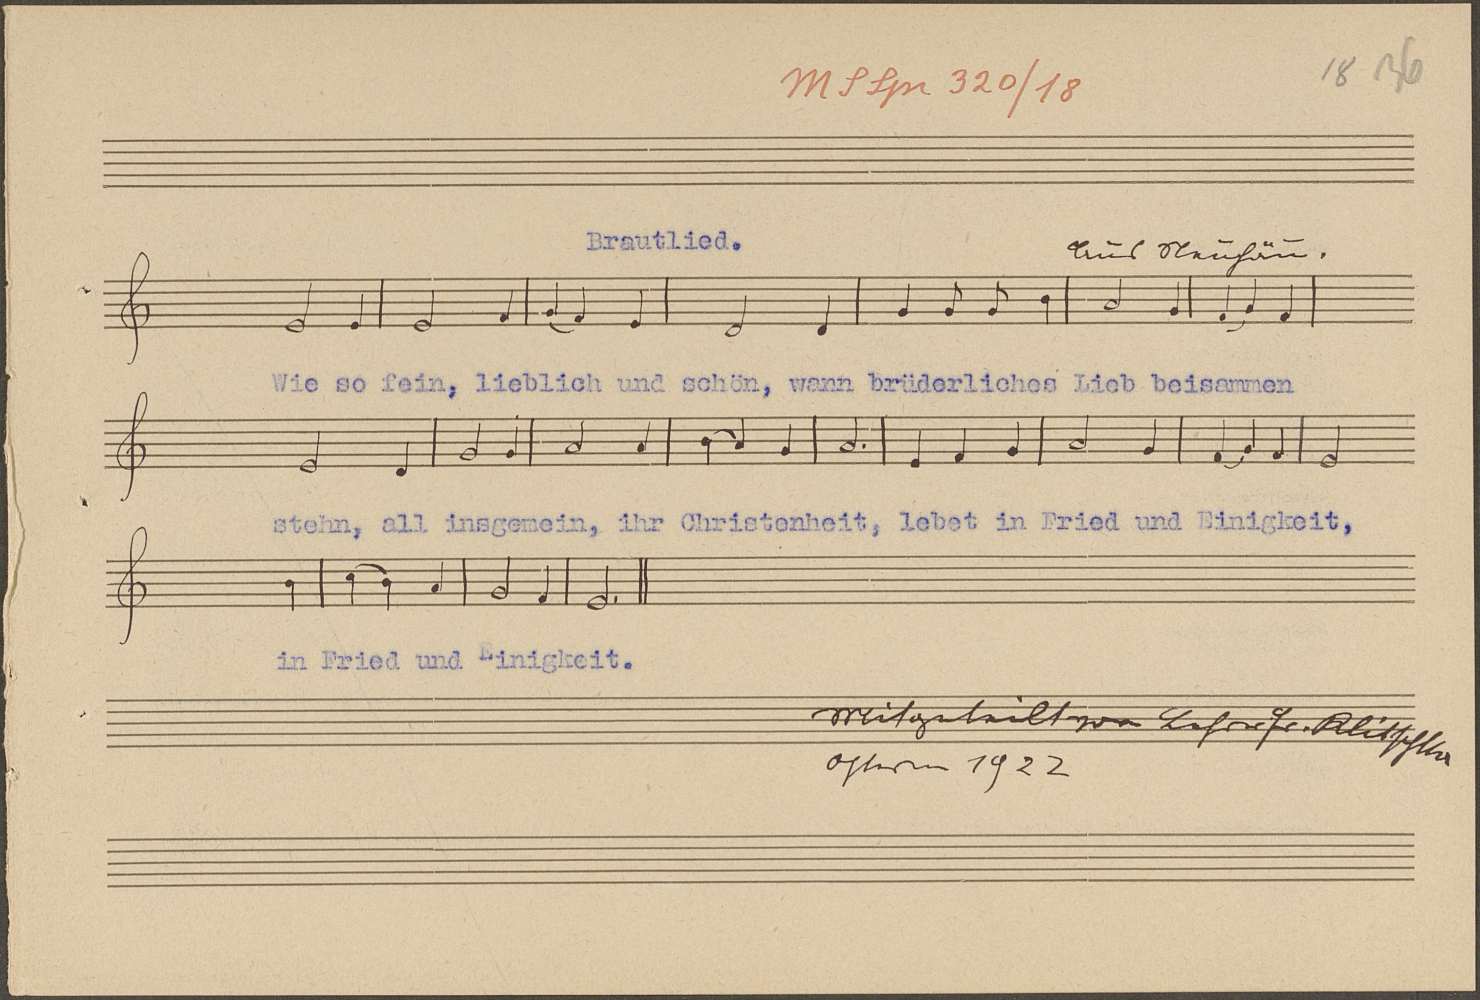 18 36
MS Spr 320/18
Brautlied.
Aus Neuhäu.
Wie so fein, lieblich und schön, wann brüderliches Lieb beisammen
stehn, all insgemein, ihr Christenheit, lebet in Fried und Einigkeit,
in Fried und Einigkeit.
Mitgeteilt von Lehrer Fr. Klitschka
Ostern 1922